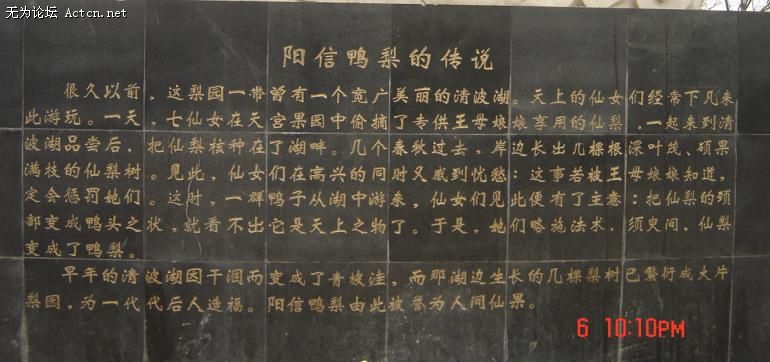 无为论坛 Actcn.net
阳信鸭梨的传说
很久以前，这梨园一带曾有一个宽广美丽的清波湖。天上的仙女们经常下凡来
此游玩。一天，七仙女在天宫果园中偷摘了专供王母娘娘享用的仙梨，一起来到清
波湖品尝后，把仙梨核种在了湖畔。几个春秋过去，岸边长出几棵根深叶茂、硕果
满枝的仙梨树。见此，仙女们在高兴的同时又感到忧愁：这事若被王母娘娘知道，
定会惩罚她们。这时，一群鸭子从湖中游来，仙女们见此便有了主意：把仙梨的颈
部变成鸭头之状，就看不出它是天上之物了。于是，她们略施法术，须臾间，仙梨
变成了鸭梨。
早年的清波湖因干涸而变成了青坡洼，而那湖边生长的几棵梨树已繁衍成大片
梨园，为一代代后人造福。阳信鸭梨由此被誉为人间仙果。
6 10:10PM